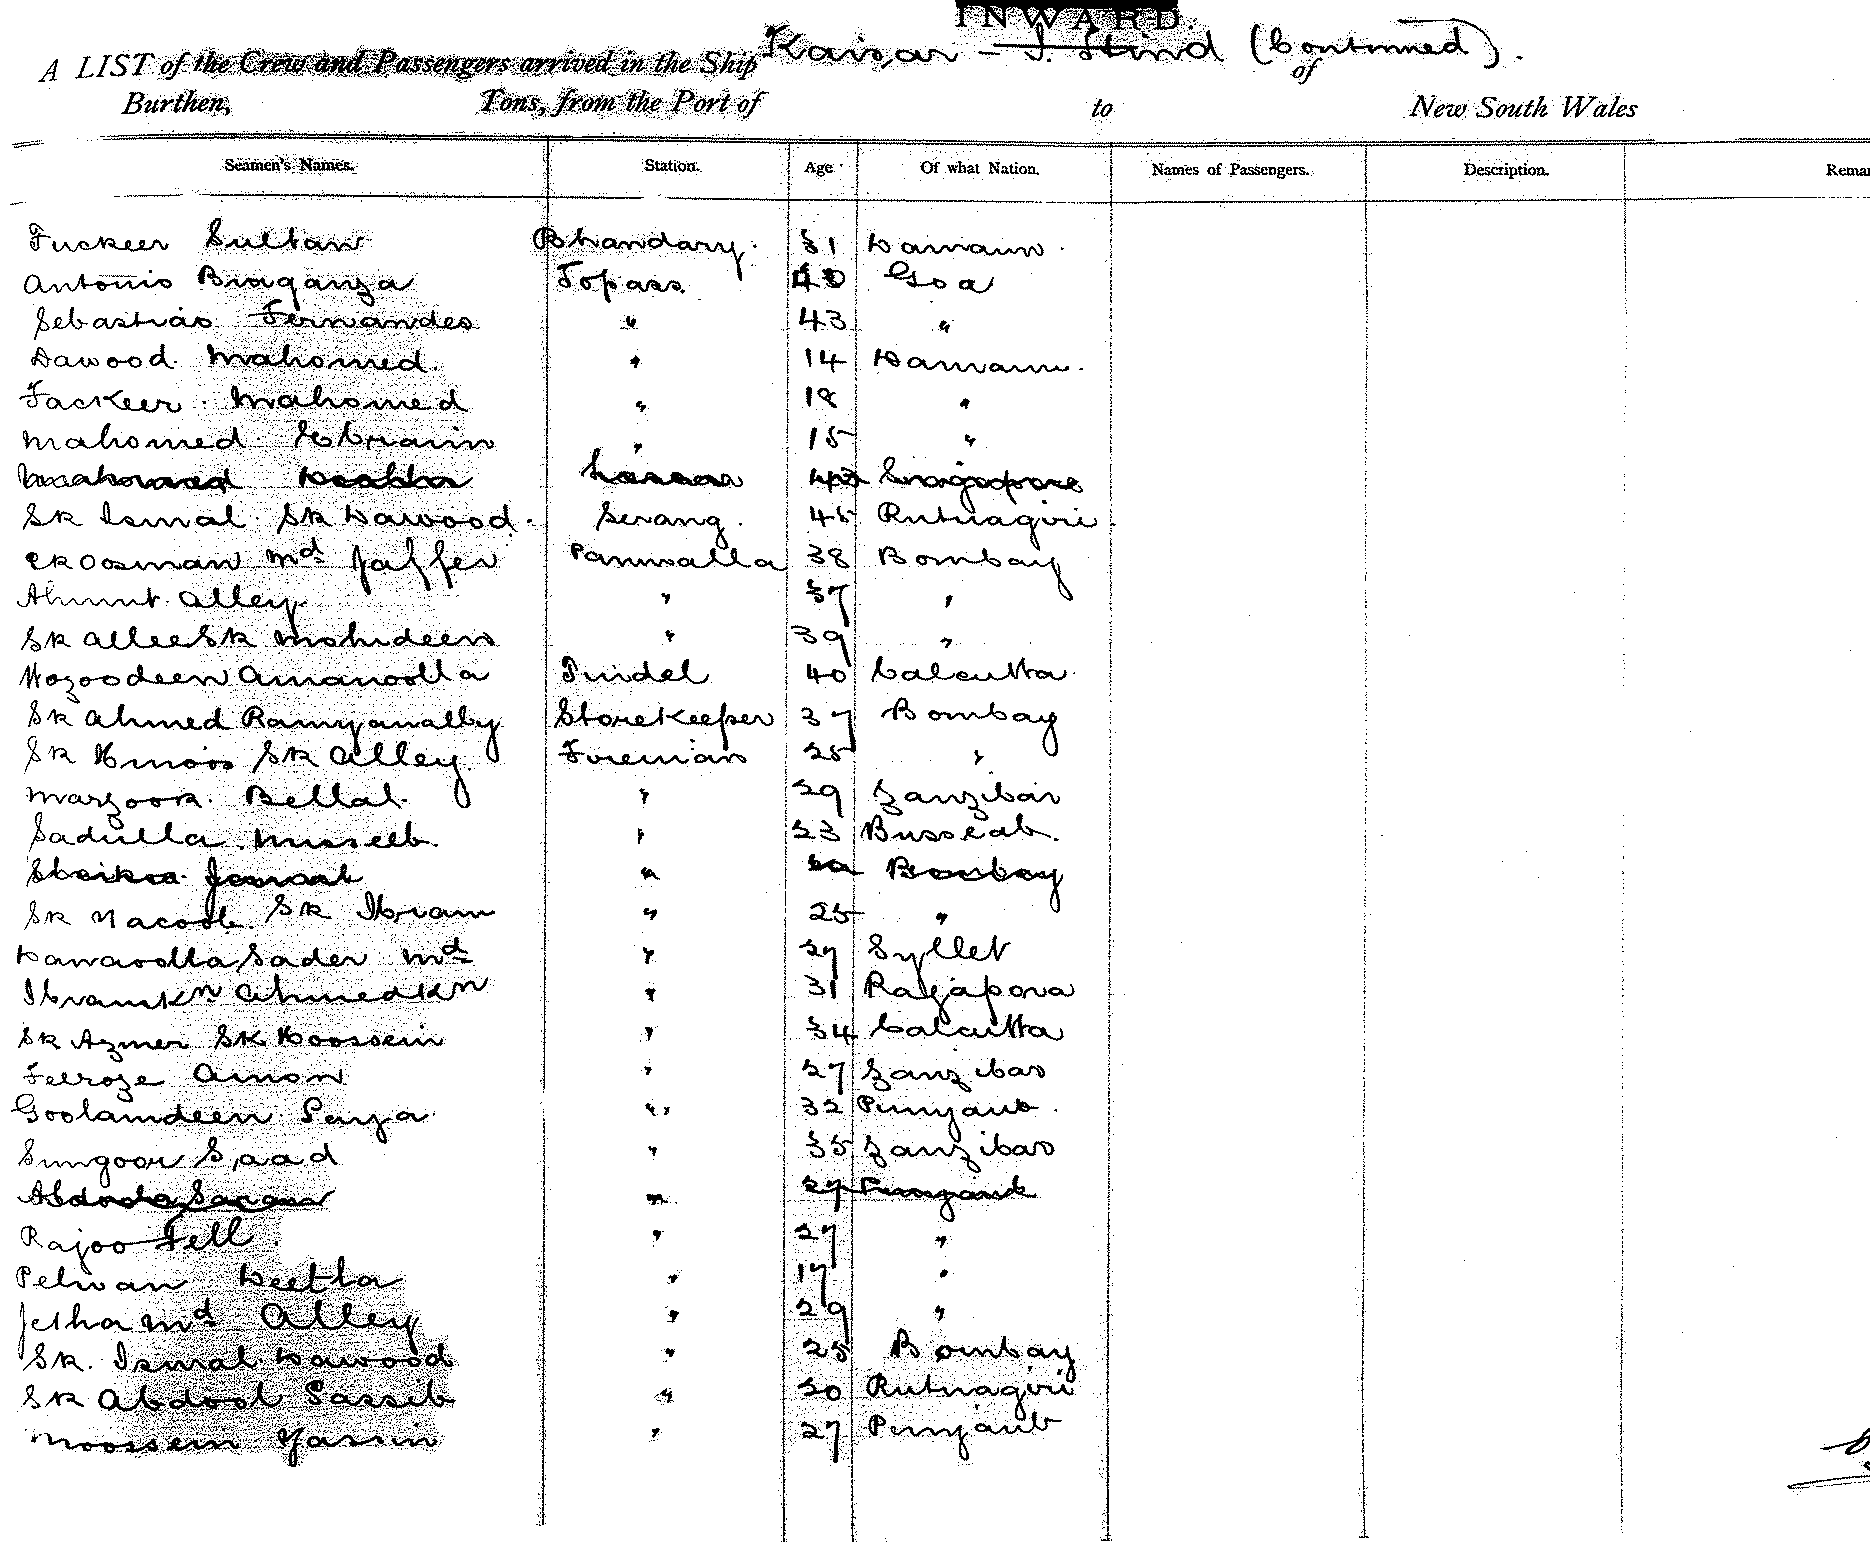 INWARD.
A LIST of the Crew and Passengers arrived in the Ship Kaisar - I. Hind (Continued). of
Burthen, Tons, from the Port of to New South Wales
Seamen's Names. Station. Age Of what Nation. Names of Passengers. Description. Remar
Fuckeer Sultan Bhandary. 31 Damaun.
Antonio Braganza Topass 40 Goa
Sebastiao Fernandes " 43 "
Dawood Mahomed. " 14 Damaun.
Fackeer Mahomed " 18 "
Mahomed Ebraim " 15 "
Mahomed Singapore
Sk Ismal Sk Dawood. Serang. 45 Rutnagiri.
Sk Oosman Md Jaffer Paniwalla 38 Bombay
Ahmut Alley " 37 "
Sk Allee Sk Mohideen " 39 "
Nozoodeen Amanoolla Tindel 40 Calcutta
Sk Ahmed Ramyanally Storekeeper 37 Bombay
Sk Sk Alley Fireman 25 "
Marzook Bellal. " 29 Zanzibar
Sadulla Museeb. " 23
" Bombay
Sk Yacoob Sk Ibram " 25 "
Sader Md " 27 Syllet
Ibramkn Ahmedkn " 31 Rajapora
Sk Azmer Sk Hoossein " 34 Calcutta
Feeroze Amon " 27 Zanzibar
Goolamdeen " 32 Punjaub.
Sungoor Saad " 35 Zanzibar
Abdoola " 27 Punjaub
Rajoo Fell. " 27 "
Pelwan Deetta " 17 "
Jetha Md Alley " 29 "
Sk. Ismal Dawood " 25 Bombay
Sk Abdool Sassib " 30 Rutnagiri
Moossein Yassin " 27 Punjaub